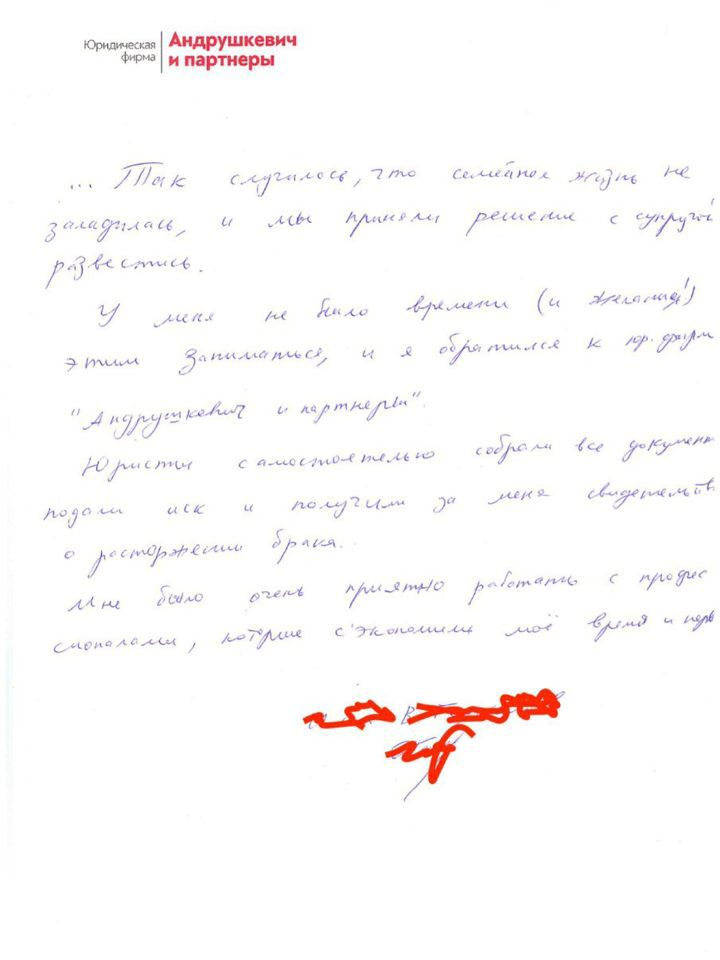 Юридическая фирма
Андрушкевич и партнеры
... Так случилось, что семейная жизнь не
заладилась, и мы приняли решение с супругой
развестись.
У меня не было времени (и желания!)
этим заниматься, и я обратился к юр. фирм
"Андрушкевич и партнеры".
Юристы самостоятельно собрали все документ
подали иск и получили за меня свидетельств
о расторжении брака.
Мне было очень приятно работать с профес
сионалами, которые с'экономили моё время и нерв